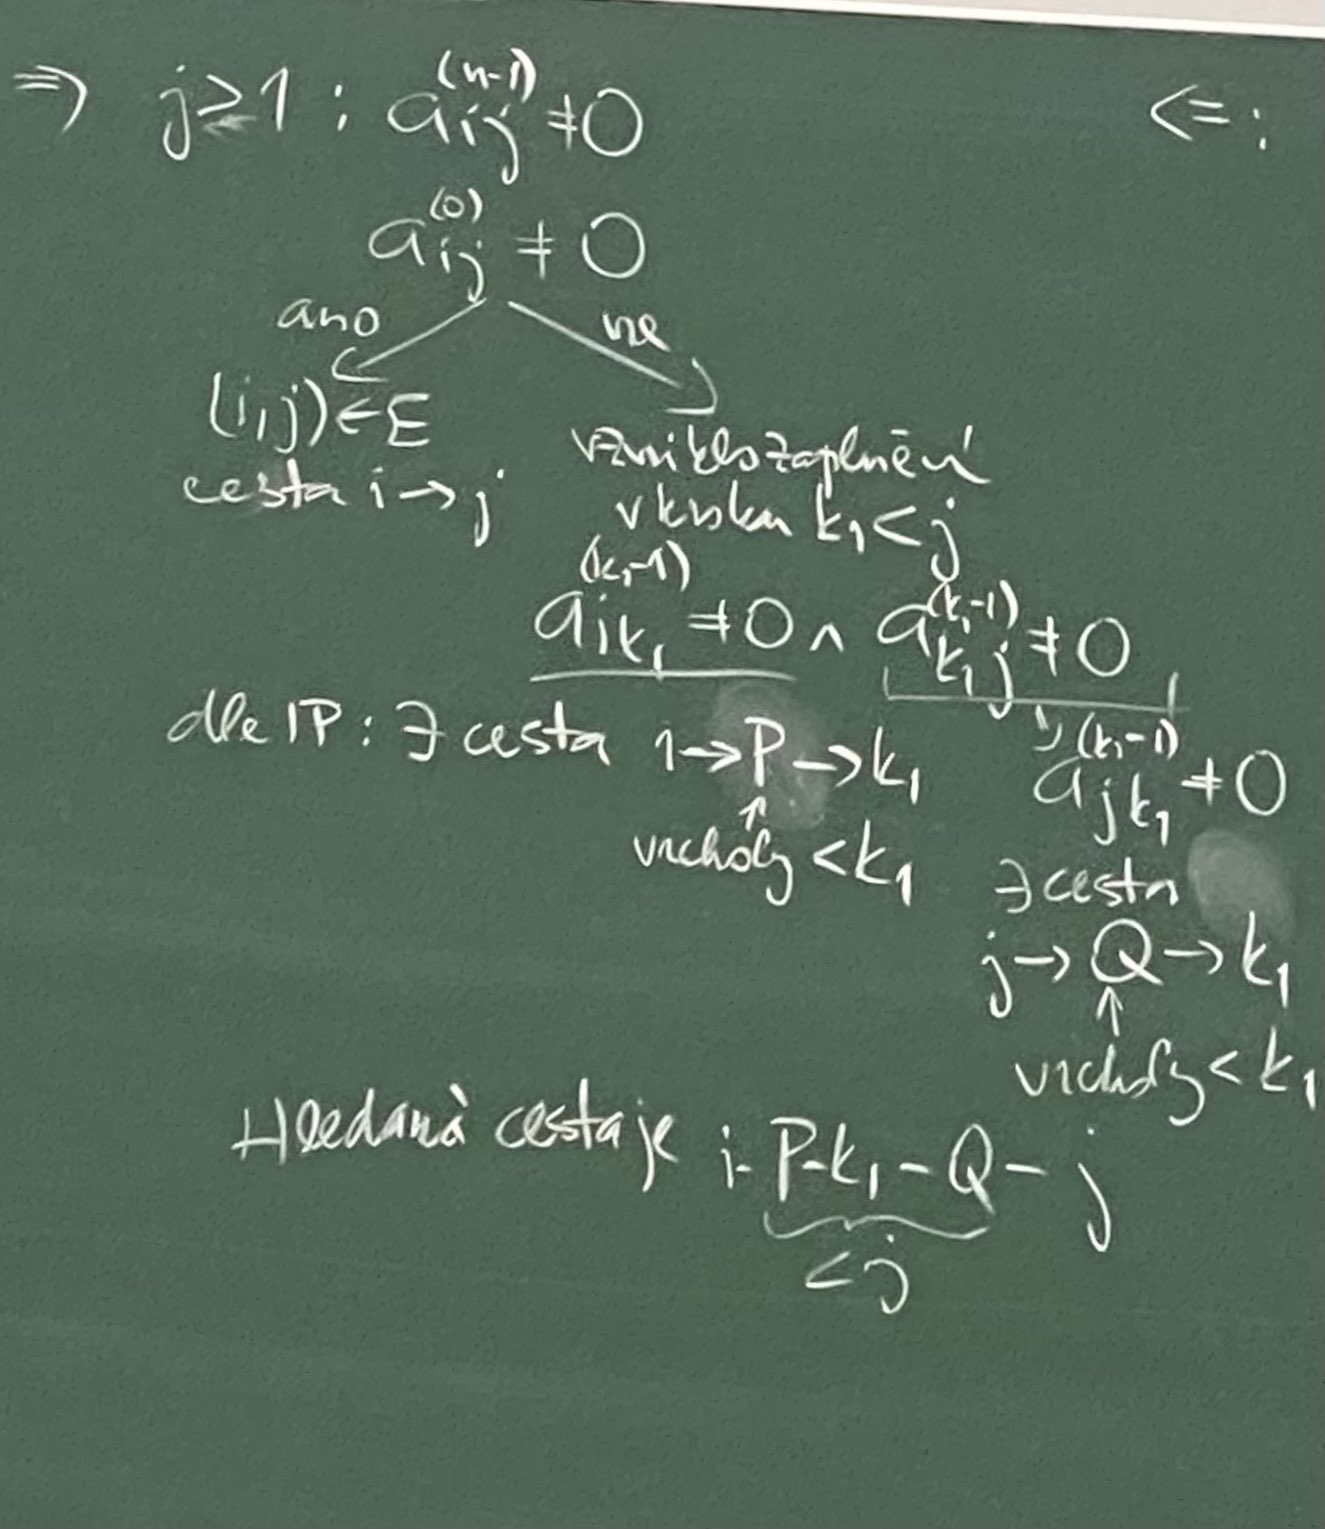 ⇒ j≥1 : a_{ij}^{(n-1)} ≠ 0
a_{ij}^{(0)} ≠ 0
ano ne
(i,j) ∈ E
cesta i → j
vzniklo zaplnění
v kroku k₁ < j
a_{ik₁}^{(k₁-1)} ≠ 0 ∧ a_{k₁j}^{(k₁-1)} ≠ 0
dle IP : ∃ cesta i → P → k₁
↑
vrcholy < k₁
a_{jk₁}^{(k₁-1)} ≠ 0
∃ cesta
j → Q → k₁
↑
vrcholy < k₁
Hledaná cesta je i - P - k₁ - Q - j
< j
⇐ :